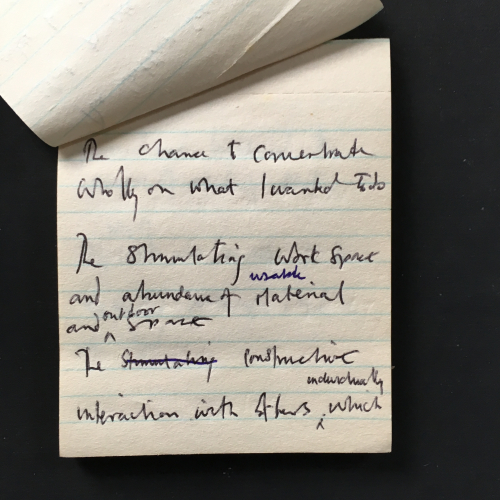 The chance to concentrate
wholly on what I wanted to do
The stimulating work space
usable
and abundance of material
outdoor
and space
The stimulating constructive
individually
interaction with others, which